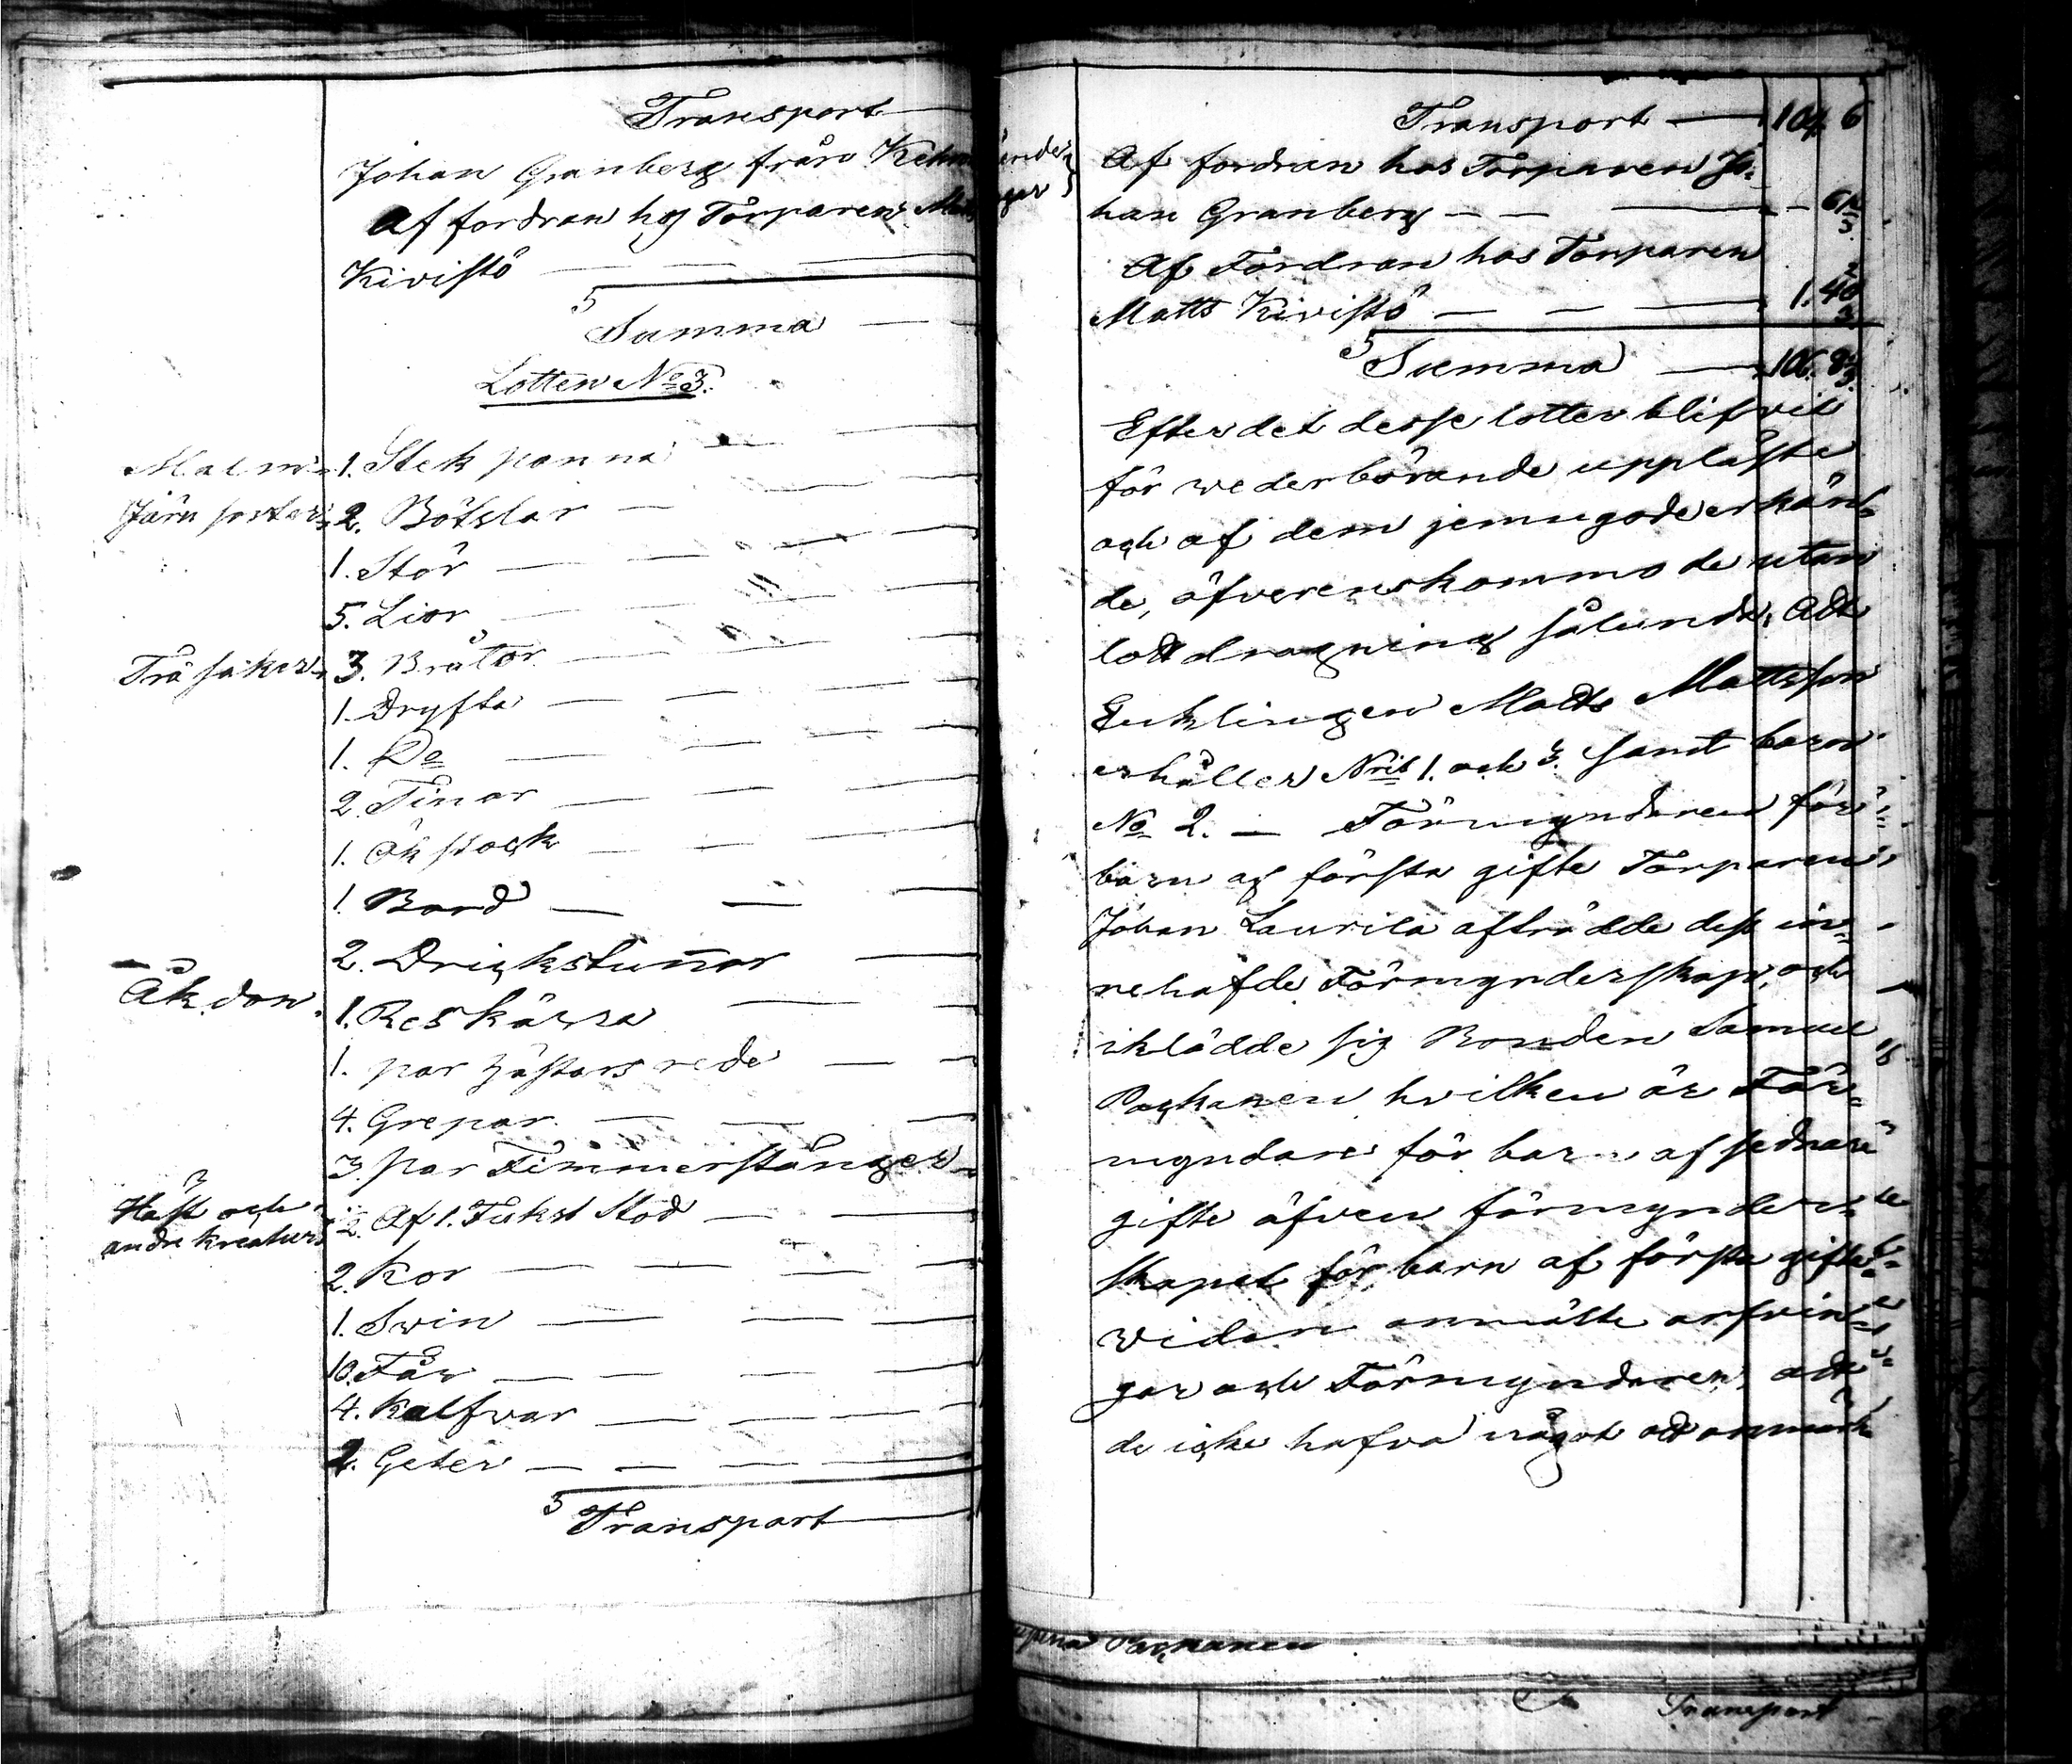 Transport
Johan Granberg från
Af fordran hos Torparen
Kivistö
Summa
Lotten No 3.
Malm 1. Stek panna
Järn saker 2. Bötslar
1. Stör
5. Lior
Trä saker 3. Bråtor
1. Dryfta
1. Do
2. Tinor
1. Ök stock
1. Bord
2. Drickstunnor
Åkdon. 1. Res kärra
1. par hästars rede
4. Grepar
3. par Timmerstänger
Häst och
andre kreatur ½. Af 1. Fukst Stod
2. Kor
1. Swin
10. Får
4. Kalfvar
2. Geter
Transport
Transport 104. 6
Af fordran hos Torparen Jo-
han Granberg
Af Fordran hos Torparen
Matts Kivistö 1. 40 2/3
Summa 106.
Efter det desse lotter blifvit
för wederbörande uppläste
och af dem jemngode erkän-
de, öfverenskommo de utan
lottdragning sålunda, Att
Enklingen Matts Mattsson
erhåller Nris 1. och 3. samt barn
No 2. — Förmyndaren för
barn af första gifte Torparen
Johan Laurila afträdde dess in-
nehafde Förmynderskap, och
iklädde sig Bonden Samuel
Packanen hvilken är För-
myndare för barn af sednare
gifte äfven förmynder-
skapet för barn af första gifte
vidare anmälte arfvin-
gar och Förmyndaren att
de icke hafva något att anmärk
Packanen
Transport